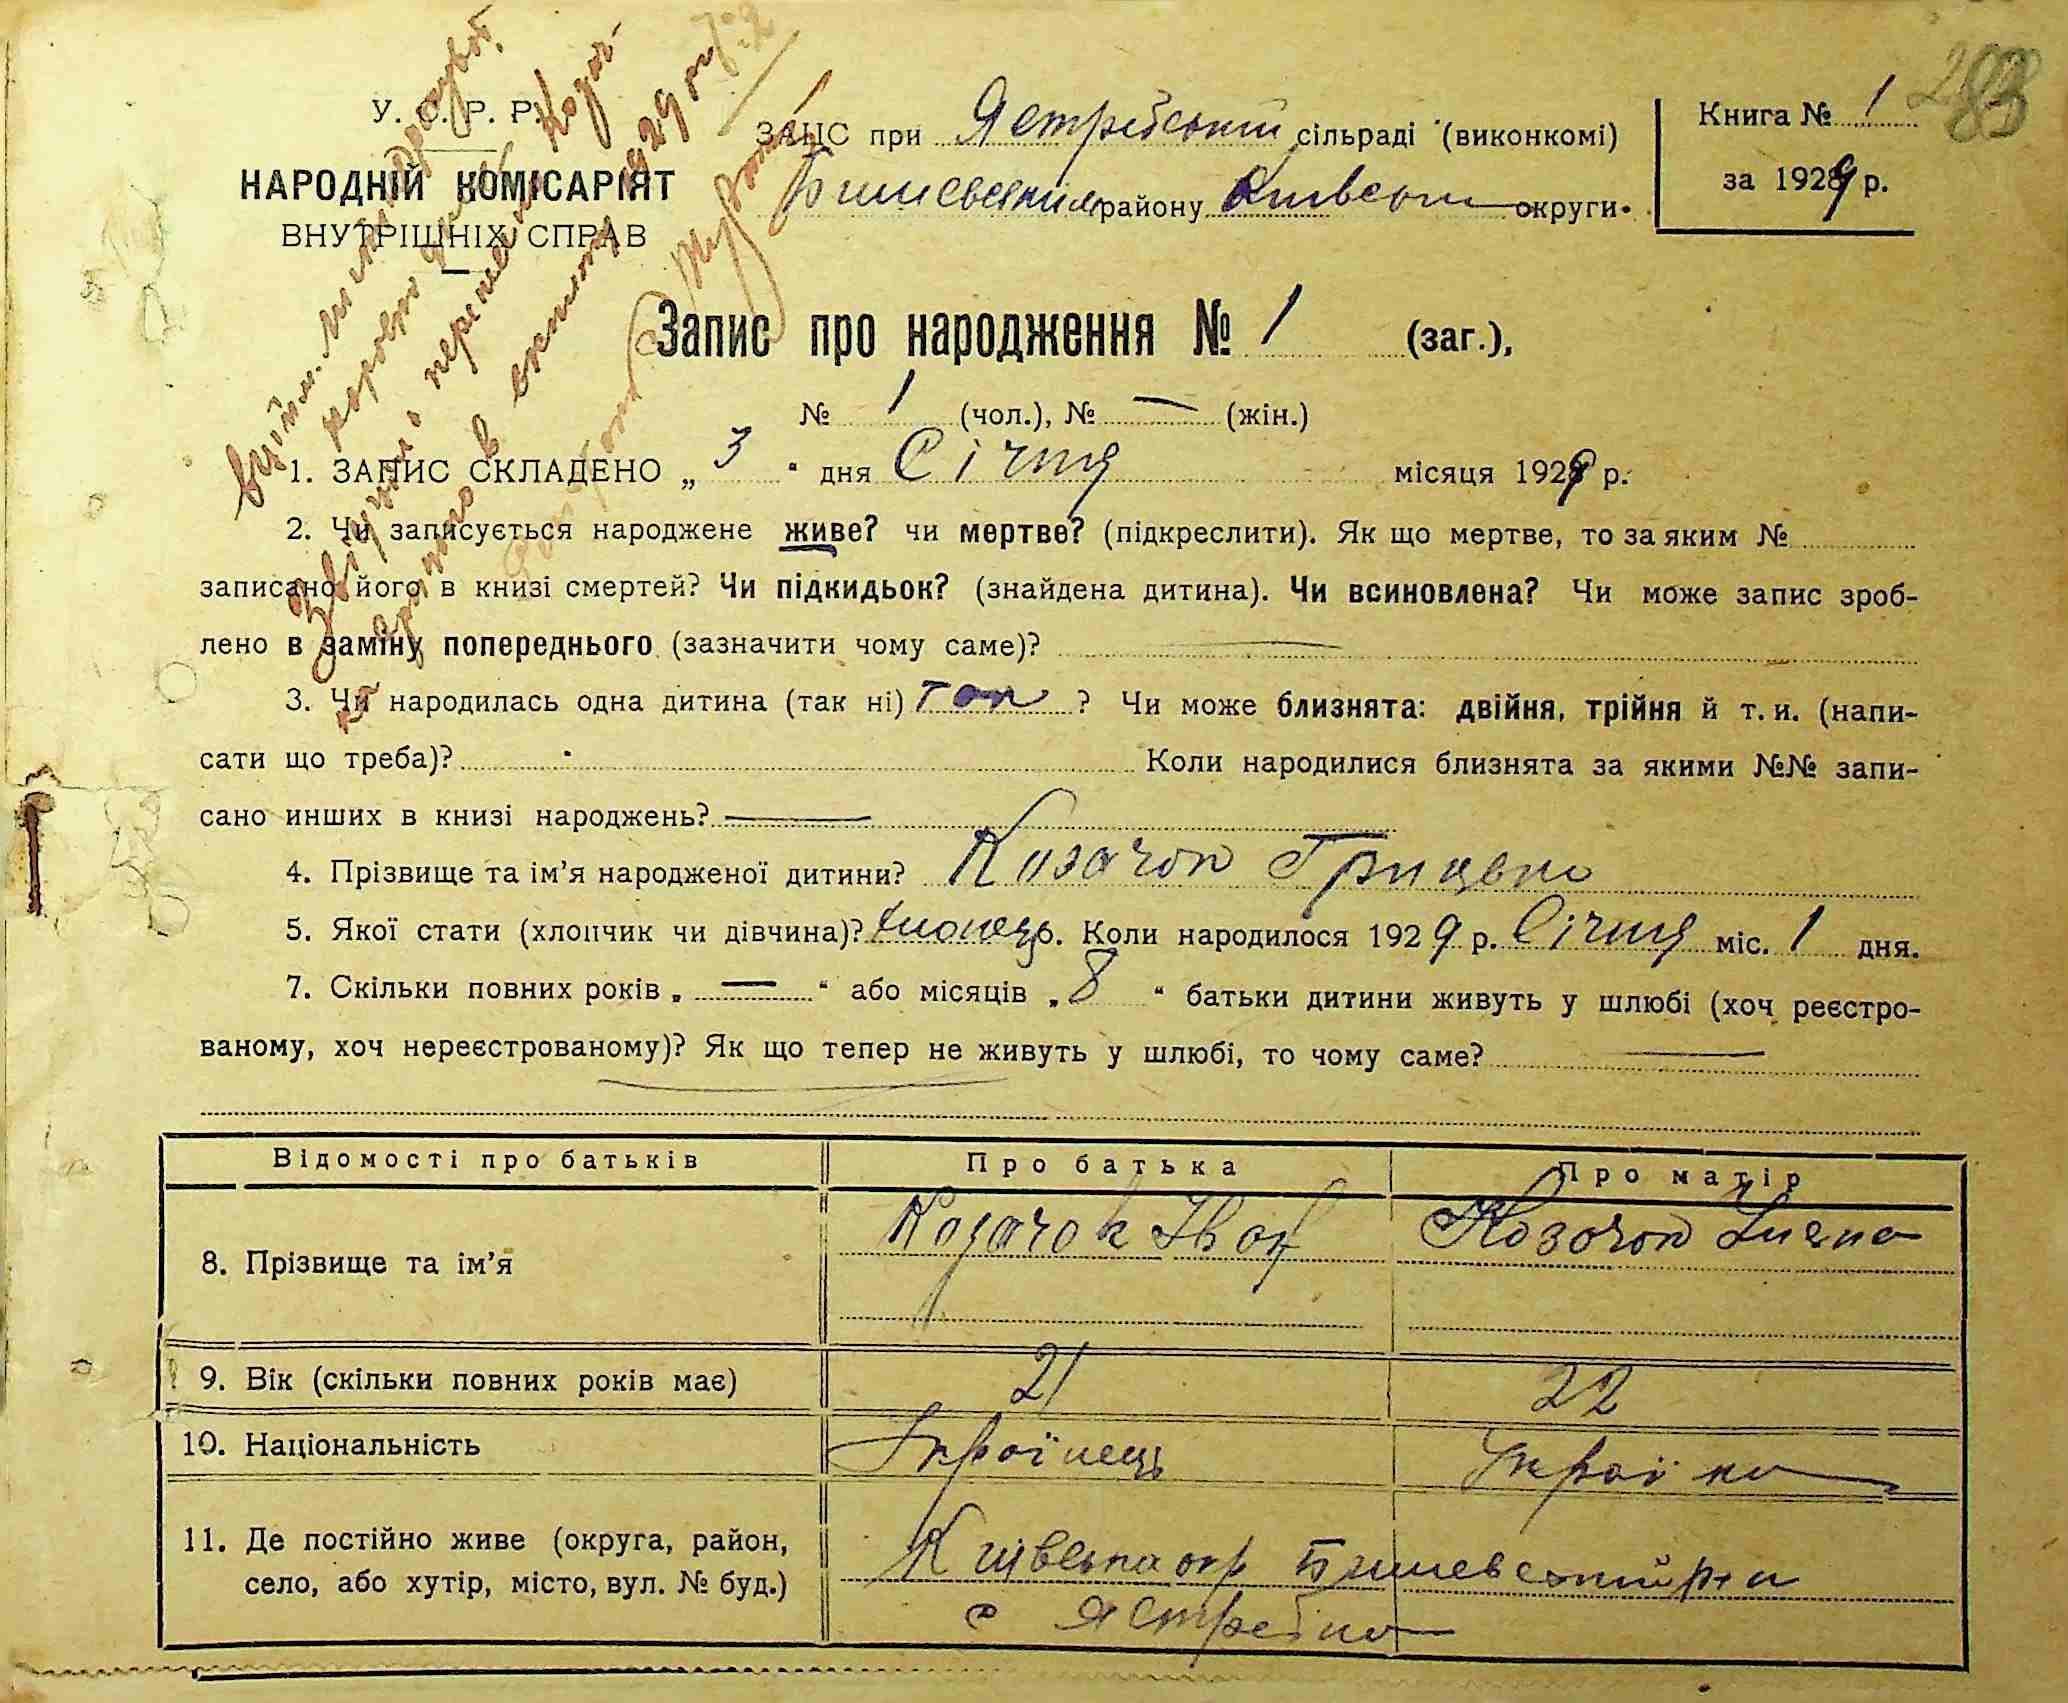 У. С. Р. Р.
НАРОДНІЙ КОМІСАРІЯТ
ВНУТРІШНІХ СПРАВ
ЗАЦС при Ястребській сільраді (виконкомі)
Бишевським району Київської округи.
Книга № 1
за 1929 р.
283
Запис про народження № 1 (заг.),
№ 1 (чол.), № — (жін.)
1. ЗАПИС СКЛАДЕНО „ 3 “ дня Січня місяця 1929 р.
2. Чи записується народжене живе? чи мертве? (підкреслити). Як що мертве, то за яким №
записано його в книзі смертей? Чи підкидьок? (знайдена дитина). Чи всиновлена? Чи може запис зроб-
лено в заміну попереднього (зазначити чому саме)? —
3. Чи народилась одна дитина (так ні) так ? Чи може близнята: двійня, трійня й т. и. (напи-
сати що треба)? Коли народилися близнята за якими №№ запи-
сано инших в книзі народжень? —
4. Прізвище та ім’я народженої дитини? Козачок Грицько
5. Якої стати (хлопчик чи дівчина)? хлопець 6. Коли народилося 1929 р. Січня міс. 1 дня.
7. Скільки повних років „ — “ або місяців „ 8 “ батьки дитини живуть у шлюбі (хоч реєстро-
ваному, хоч нереєстрованому)? Як що тепер не живуть у шлюбі, то чому саме? —
Відомості про батьків Про батька Про матір
8. Прізвище та ім’я Козачок Іван Козачок
9. Вік (скільки повних років має) 21 22
10. Національність Українець Українка
11. Де постійно живе (округа, район,
село, або хутір, місто, вул. № буд.)
Київська окр Бишевський р-н
с Ястребна